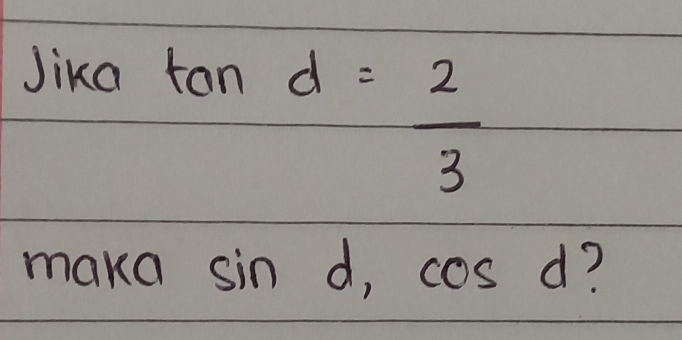 Jika tan d = 2
3
maka sin d, cos d?